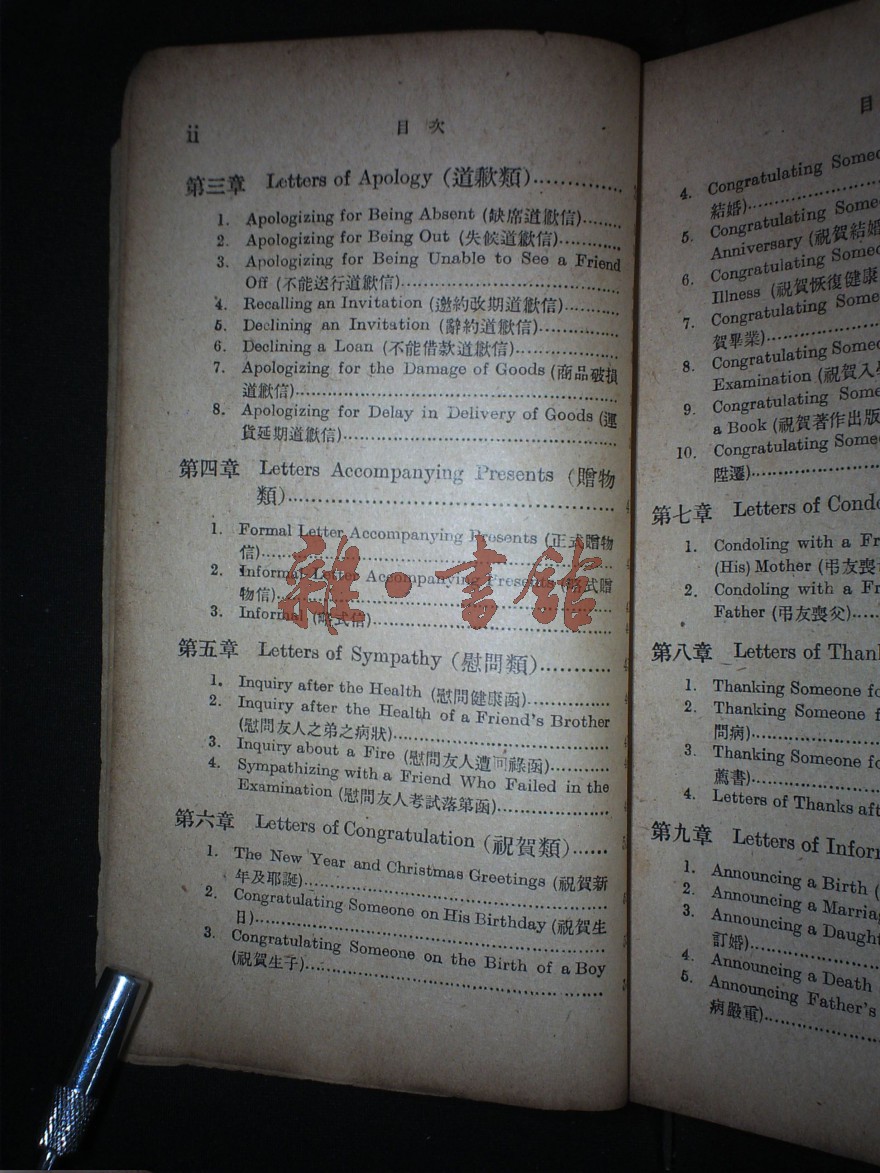 ii
目次
第三章 Letters of Apology (道歉類)..............
1. Apologizing for Being Absent (缺席道歉信).......
2. Apologizing for Being Out (失候道歉信)...........
3. Apologizing for Being Unable to See a Friend
Off (不能送行道歉信)...................................
4. Recalling an Invitation (邀約改期道歉信)...........
5. Declining an Invitation (辭約道歉信)..............
6. Declining a Loan (不能借款道歉信)..................
7. Apologizing for the Damage of Goods (商品破損
道歉信)......................................................
8. Apologizing for Delay in Delivery of Goods (運
貨延期道歉信)..............................................
第四章 Letters Accompanying Presents (贈物
類)......................................................
1. Formal Letter Accompanying Presents (正式贈物
信)............................................................
2. Informal Letter Accompanying Presents (略式贈
物信)..........................................................
3. Informal (略式信)..........................................
第五章 Letters of Sympathy (慰問類)............
1. Inquiry after the Health (慰問健康函)..............
2. Inquiry after the Health of a Friend's Brother
(慰問友人之弟之病狀)...................................
3. Inquiry about a Fire (慰問友人遭回祿函)..........
4. Sympathizing with a Friend Who Failed in the
Examination (慰問友人考試落第函)..................
第六章 Letters of Congratulation (祝賀類)......
1. The New Year and Christmas Greetings (祝賀新
年及耶誕)....................................................
2. Congratulating Someone on His Birthday (祝賀生
日)............................................................
3. Congratulating Someone on the Birth of a Boy
(祝賀生子)..................................................
雜·書館
目
4. Congratulating
結婚)..................
5. Congratulating
Anniversary (祝賀結婚
6. Congratulating
Illness (祝賀恢復健康
7. Congratulating
賀畢業)..................
8. Congratulating
Examination (祝賀入
9. Congratulating
a Book (祝賀著作出版
10. Congratulating
陞遷)..................
第七章 Letters of
1. Condoling with a
(His) Mother (弔友喪
2. Condoling with a
Father (弔友喪父)......
第八章 Letters of
1. Thanking Someone
2. Thanking Someone
問病)..................
3. Thanking Someone
薦書)..................
4. Letters of Thanks
第九章 Letters of
1. Announcing a Birth (
2. Announcing a
3. Announcing a
訂婚)..................
4. Announcing a Death
5. Announcing Father's
病嚴重)..................